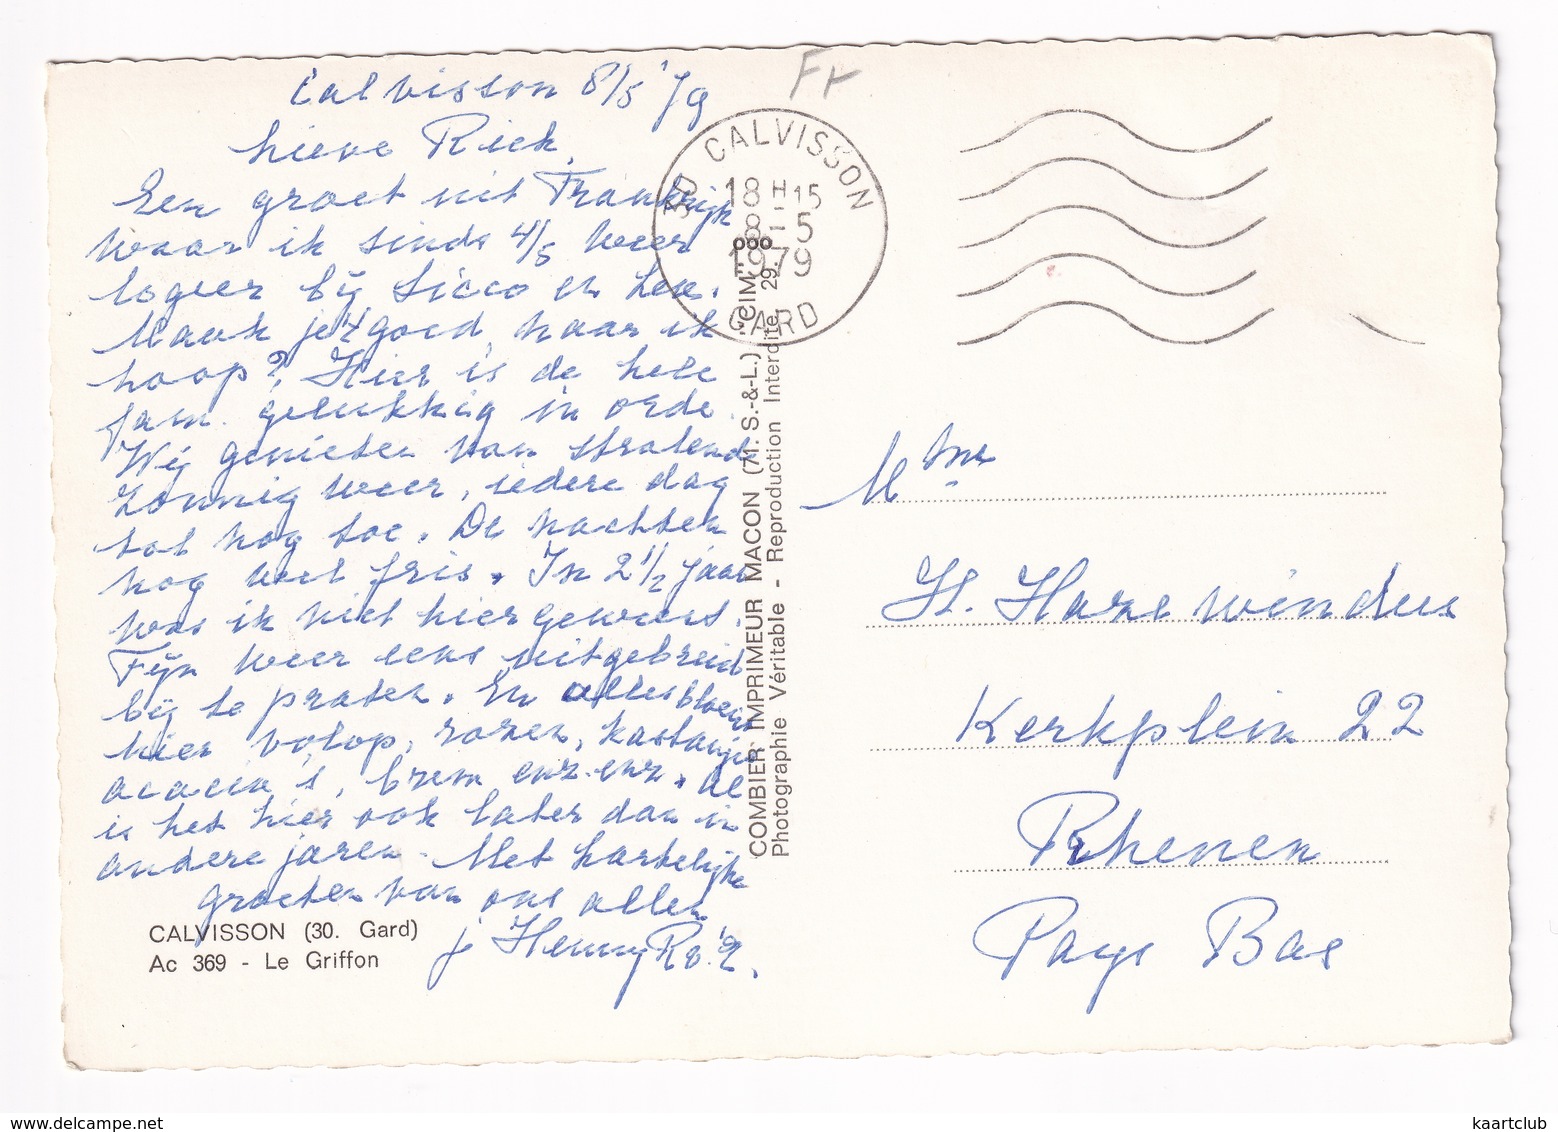 Calvisson 8/5 '79
Lieve Riek,
Een groet uit Frankrijk
waar ik sinds 4/5 weer
logeer bij Sicco en
Maak je 't goed, naar ik
hoop? Hier is de hele
fam. gelukkig in orde.
Wij genieten van stralend
zonnig weer, iedere dag
tot nog toe. De nachten
nog wel fris. In 2 1/2 jaar
was ik niet hier geweest.
Fijn weer eens uitgebreid
bij te praten. En alles bloeit
hier volop, rozen, kastanje
acacia's, brem enz. enz. Al
is het hier ook later dan in
andere jaren. Met hartelijke
groeten van ons allen
je Henny
CALVISSON (30. Gard)
Ac 369 - Le Griffon
COMBIER IMPRIMEUR MACON (71. S.-&-L.) "CIM"
Photographie Véritable - Reproduction Interdite 29.
Fr
30 CALVISSON
18 H 15
8 - 5
1979
GARD
Mme
H. Hazewindus
Kerkplein 22
Rhenen
Pays Bas
kaartclub